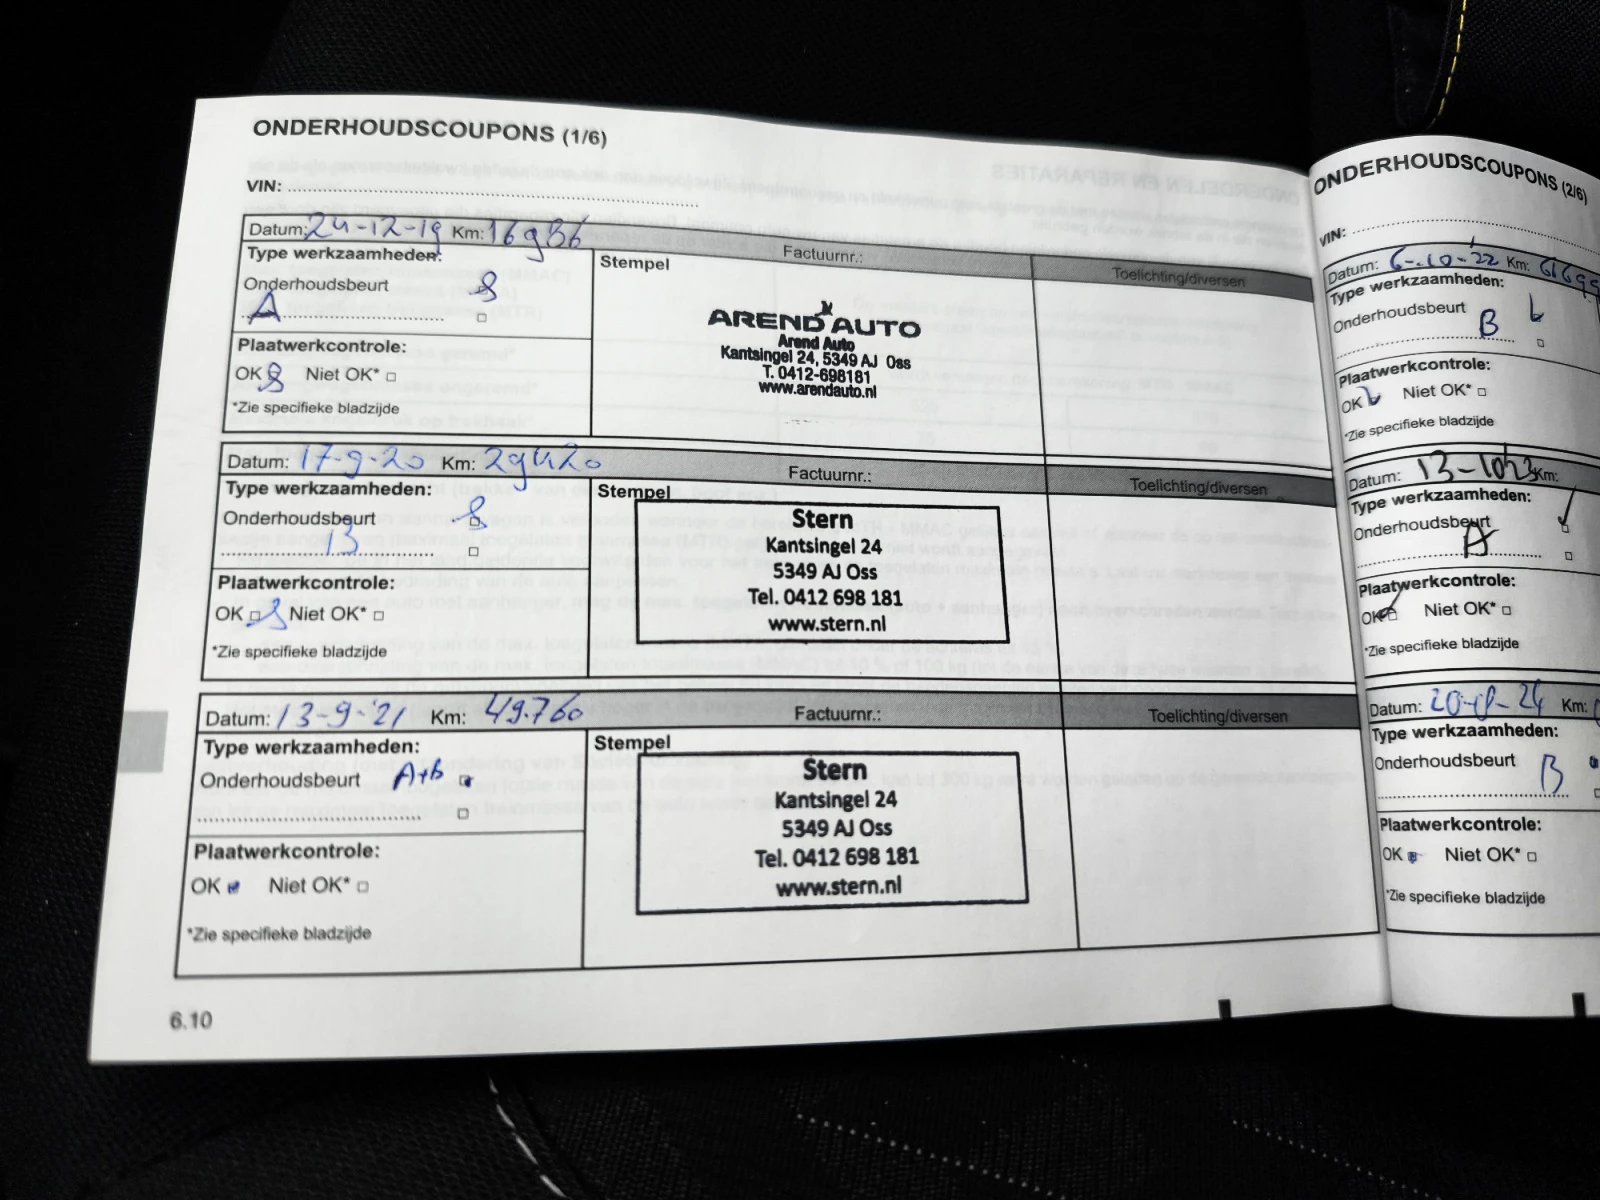 ONDERHOUDSCOUPONS (1/6)
VIN:
Datum: 24-12-19 Km: 16986 Factuurnr.: Toelichting/diversen
Type werkzaamheden: Stempel
Onderhoudsbeurt
A
Plaatwerkcontrole:
OK Niet OK*
*Zie specifieke bladzijde
AREND AUTO
Arend Auto
Kantsingel 24, 5349 AJ Oss
T. 0412-698181
www.arendauto.nl
Datum: 17-9-20 Km: 29420 Factuurnr.: Toelichting/diversen
Type werkzaamheden: Stempel
Onderhoudsbeurt
B
Plaatwerkcontrole:
OK Niet OK*
*Zie specifieke bladzijde
Stern
Kantsingel 24
5349 AJ Oss
Tel. 0412 698 181
www.stern.nl
Datum: 13-9-'21 Km: 49.760 Factuurnr.: Toelichting/diversen
Type werkzaamheden: Stempel
Onderhoudsbeurt A+B
Plaatwerkcontrole:
OK Niet OK*
*Zie specifieke bladzijde
Stern
Kantsingel 24
5349 AJ Oss
Tel. 0412 698 181
www.stern.nl
6.10
ONDERHOUDSCOUPONS (2/6)
VIN:
Datum: 6-10-22 Km:
Type werkzaamheden:
Onderhoudsbeurt B
Plaatwerkcontrole:
OK Niet OK*
*Zie specifieke bladzijde
Datum: 13-10-23 Km:
Type werkzaamheden:
Onderhoudsbeurt
A
Plaatwerkcontrole:
OK Niet OK*
*Zie specifieke bladzijde
Datum: Km:
Type werkzaamheden:
Onderhoudsbeurt B
Plaatwerkcontrole:
OK Niet OK*
*Zie specifieke bladzijde